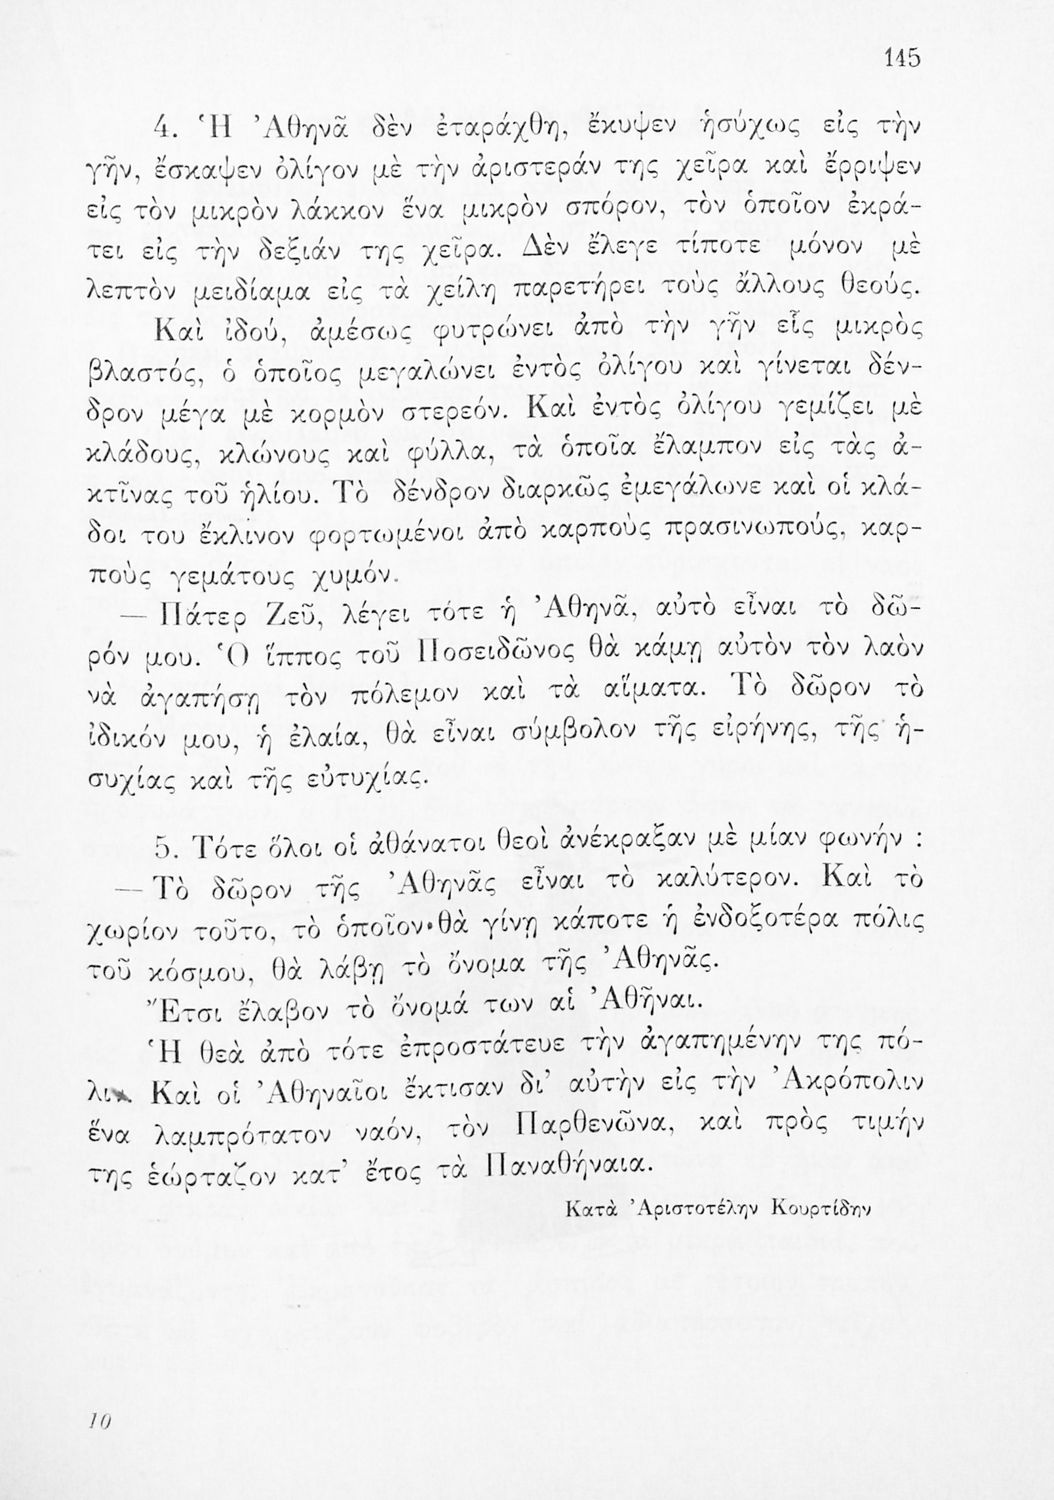 145
4. Ἡ Ἀθηνᾶ δὲν ἐταράχθη, ἔκυψεν ἡσύχως εἰς τὴν
γῆν, ἔσκαψεν ὀλίγον μὲ τὴν ἀριστεράν της χεῖρα καὶ ἔρριψεν
εἰς τὸν μικρὸν λάκκον ἕνα μικρὸν σπόρον, τὸν ὁποῖον ἐκρά-
τει εἰς τὴν δεξιάν της χεῖρα. Δὲν ἔλεγε τίποτε μόνον μὲ
λεπτὸν μειδίαμα εἰς τὰ χείλη παρετήρει τοὺς ἄλλους θεούς.
Καὶ ἰδού, ἀμέσως φυτρώνει ἀπὸ τὴν γῆν εἷς μικρὸς
βλαστός, ὁ ὁποῖος μεγαλώνει ἐντὸς ὀλίγου καὶ γίνεται δέν-
δρον μέγα μὲ κορμὸν στερεόν. Καὶ ἐντὸς ὀλίγου γεμίζει μὲ
κλάδους, κλώνους καὶ φύλλα, τὰ ὁποῖα ἔλαμπον εἰς τὰς ἀ-
κτῖνας τοῦ ἡλίου. Τὸ δένδρον διαρκῶς ἐμεγάλωνε καὶ οἱ κλά-
δοι του ἔκλινον φορτωμένοι ἀπὸ καρποὺς πρασινωπούς, καρ-
ποὺς γεμάτους χυμόν.
— Πάτερ Ζεῦ, λέγει τότε ἡ Ἀθηνᾶ, αὐτὸ εἶναι τὸ δῶ-
ρόν μου. Ὁ ἵππος τοῦ Ποσειδῶνος θὰ κάμῃ αὐτὸν τὸν λαὸν
νὰ ἀγαπήσῃ τὸν πόλεμον καὶ τὰ αἵματα. Τὸ δῶρον τὸ
ἰδικόν μου, ἡ ἐλαία, θὰ εἶναι σύμβολον τῆς εἰρήνης, τῆς ἡ-
συχίας καὶ τῆς εὐτυχίας.
5. Τότε ὅλοι οἱ ἀθάνατοι θεοὶ ἀνέκραξαν μὲ μίαν φωνήν :
— Τὸ δῶρον τῆς Ἀθηνᾶς εἶναι τὸ καλύτερον. Καὶ τὸ
χωρίον τοῦτο, τὸ ὁποῖον θὰ γίνῃ κάποτε ἡ ἐνδοξοτέρα πόλις
τοῦ κόσμου, θὰ λάβῃ τὸ ὄνομα τῆς Ἀθηνᾶς.
Ἔτσι ἔλαβον τὸ ὄνομά των αἱ Ἀθῆναι.
Ἡ θεὰ ἀπὸ τότε ἐπροστάτευε τὴν ἀγαπημένην της πό-
λιν. Καὶ οἱ Ἀθηναῖοι ἔκτισαν δι' αὐτὴν εἰς τὴν Ἀκρόπολιν
ἕνα λαμπρότατον ναόν, τὸν Παρθενῶνα, καὶ πρὸς τιμήν
της ἑώρταζον κατ' ἔτος τὰ Παναθήναια.
Κατὰ Ἀριστοτέλην Κουρτίδην
10